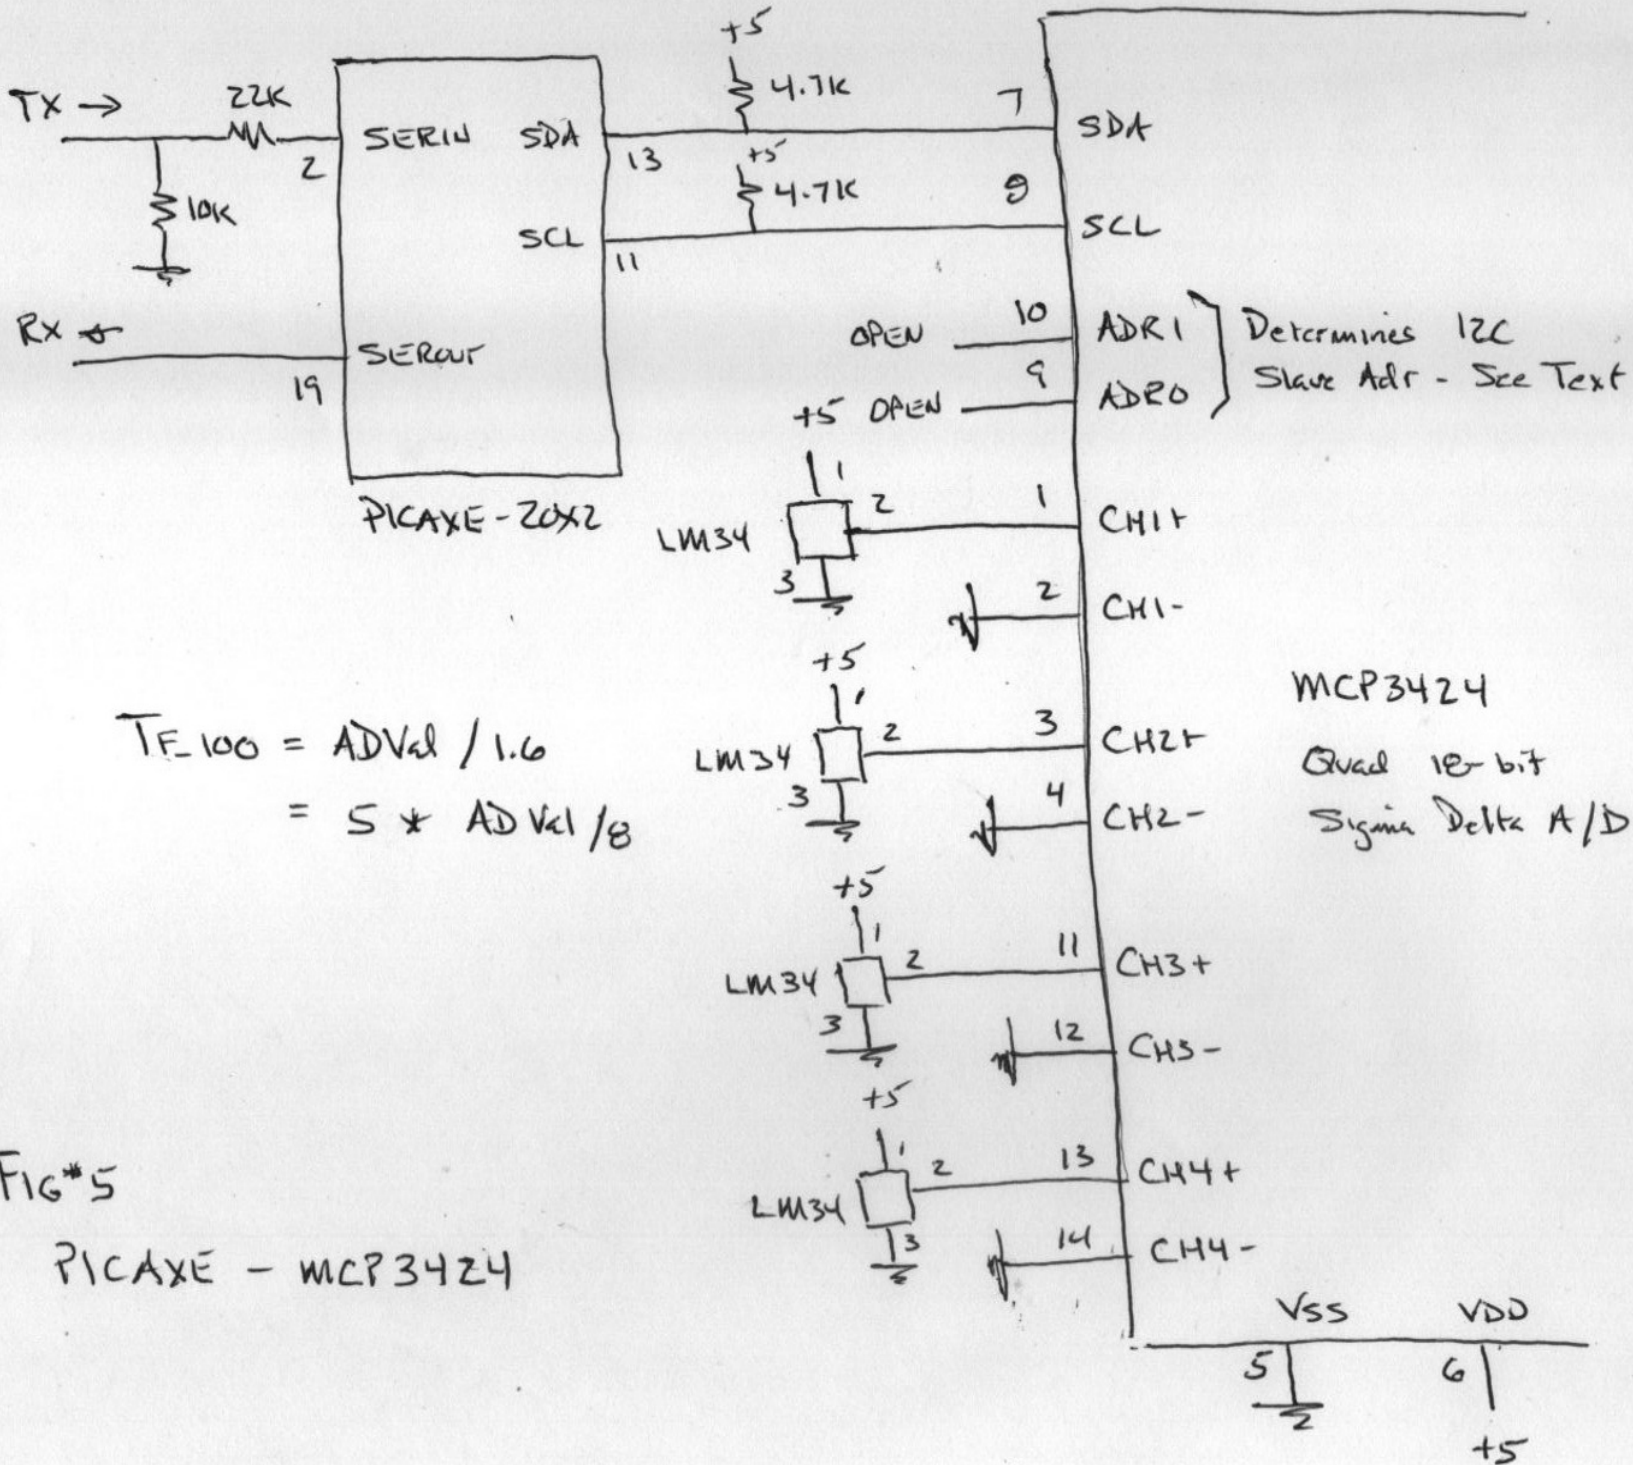 TX →
22K
10K
2
RX ←
19
SERIN
SEROUT
SDA
SCL
13
11
PICAXE-20X2
+5
4.7K
+5
4.7K
7
SDA
8
SCL
OPEN
10
ADR1
OPEN
9
ADR0
Determines I2C
Slave Adr - See Text
+5
1
LM34
2
3
1
CH1+
2
CH1-
+5
1
LM34
2
3
3
CH2+
4
CH2-
MCP3424
Quad 18-bit
Sigma Delta A/D
TF_100 = ADVal / 1.6
= 5 * ADVal/8
+5
1
LM34
2
3
11
CH3+
12
CH3-
+5
1
LM34
2
3
13
CH4+
14
CH4-
VSS
VDD
5
6
+5
FIG#5
PICAXE - MCP3424